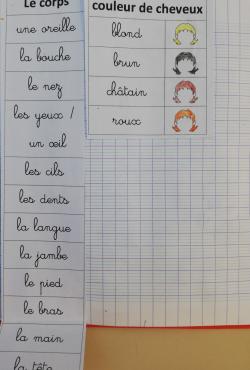 Le corps
une oreille
la bouche
le nez
les yeux /
un œil
les cils
les dents
la langue
la jambe
le pied
le bras
la main
la tête
couleur de cheveux
blond
brun
châtain
roux